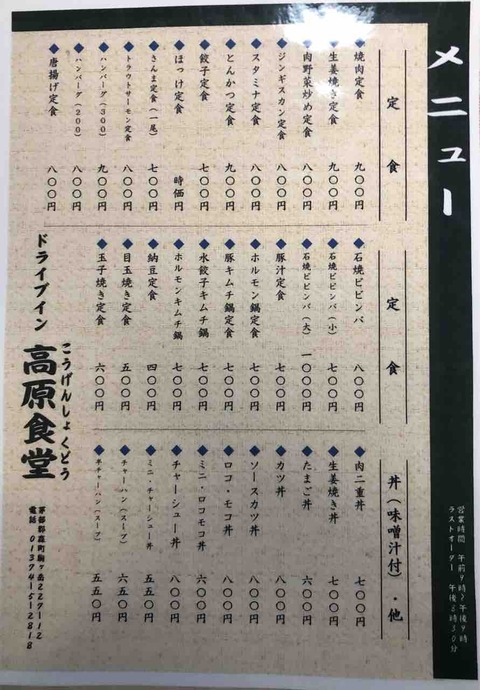 メニュー
営業時間 午前9時~午後9時
ラストオーダー 午後8時30分
定食
◆焼肉定食 九〇〇円
◆生姜焼き定食 九〇〇円
◆肉野菜炒め定食 八〇〇円
◆ジンギスカン定食 八〇〇円
◆スタミナ定食 八〇〇円
◆とんかつ定食 九〇〇円
◆餃子定食 七〇〇円
◆ほっけ定食 時価円
◆さんま定食(一尾) 七〇〇円
◆トラウトサーモン定食 八〇〇円
◆ハンバーグ(300) 九〇〇円
◆ハンバーグ(200) 八〇〇円
◆唐揚げ定食 八〇〇円
定食
◆石焼ビビンバ 八〇〇円
◆石焼ビビンバ(小) 七〇〇円
◆石焼ビビンバ(大) 一〇〇〇円
◆豚汁定食 七〇〇円
◆ホルモン鍋定食 七〇〇円
◆豚キムチ鍋定食 七〇〇円
◆水餃子キムチ鍋 七〇〇円
◆ホルモンキムチ鍋 七〇〇円
◆納豆定食 四〇〇円
◆目玉焼き定食 五〇〇円
◆玉子焼き定食 六〇〇円
丼(味噌汁付)・他
◆肉二重丼 七〇〇円
◆生姜焼き丼 七〇〇円
◆たまご丼 六〇〇円
◆カツ丼 八〇〇円
◆ソースカツ丼 八〇〇円
◆ロコ・モコ丼 八〇〇円
◆ミニ・ロコモコ丼 六〇〇円
◆チャーシュー丼 八〇〇円
◆ミニ・チャーシュー丼 五五〇円
◆チャーハン(スープ) 六五〇円
◆半チャーハン(スープ) 五五〇円
ドライブイン
こうげんしょくどう
高原食堂
茅部郡森町駒ヶ岳227-12
電話 01374-5-2818